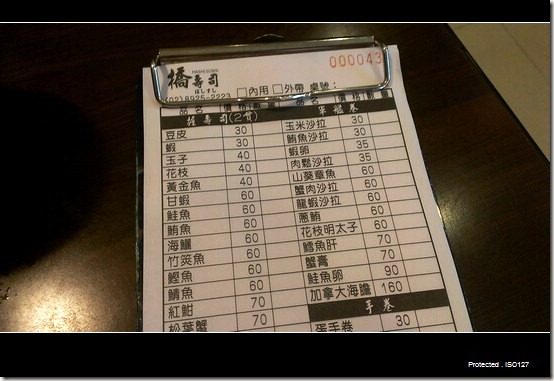 000043
橋壽司
はしすし
(02)8925-2223 □內用 □外帶 桌號：
品名 價格 數量 品名 價格
握壽司(2貫) 軍艦卷
豆皮 30 玉米沙拉 30
蝦 30 鮪魚沙拉 30
玉子 40 蝦卵 35
花枝 40 肉鬆沙拉 35
黃金魚 40 山葵章魚 60
甘蝦 60 蟹肉沙拉 60
鮭魚 60 龍蝦沙拉 60
鮪魚 60 蔥鮪 60
海鱺 60 花枝明太子 60
竹筴魚 60 鱈魚肝 70
鰹魚 60 蟹膏 70
鯖魚 60 鮭魚卵 90
紅魽 70 加拿大海膽 160
松葉蟹 70 手卷
蛋手卷 30
Protected . ISO127